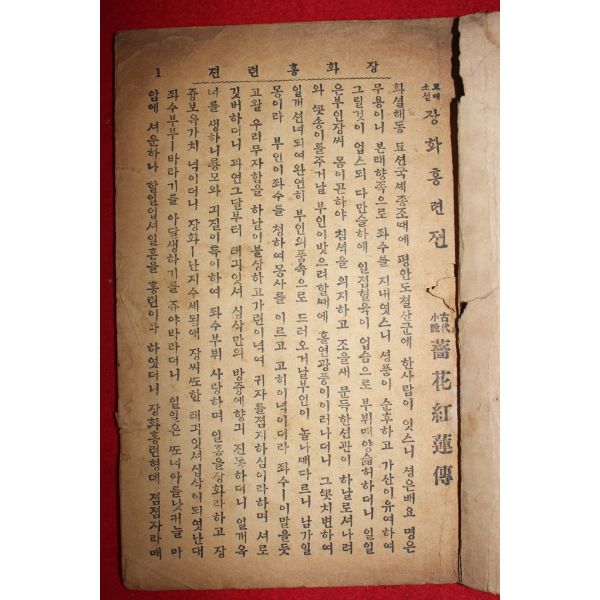 장화홍련전 1
고대소설 장화홍련전 古代小說 薔花紅蓮傳
화셜해동 됴션국셰종조때에 평안도쳘산군에 한사람이 잇스니 셩은배요 명은
무용이니 본래향족으로 좌수를 지내엿스니 셩품이 순후하고 가산이유여하여
그릴것이 업스되 다만슬하에 일졈혈육이 업슴으로 부뷔매양슬허하더니 일일
은부인장씨 몸이곤하야 침셕을 의지하고 조을새 문득한션관이 하날로셔나려
와 꼿송이를주거날 부인이밧으려할때에 홀연광풍이이러나더니 그꼿치변하여
일개션녀되여완연히 부인의품속으로 드러오거날부인이 놀나깨다르니 남가일
몽이라 부인이좌수를 쳥하여몽사를 이르고 고히이녁이더라 좌수ㅣ이말을듯
고왈 우리무자함을 하날이불상하고가련이녁여 귀자를졈지하심이라하며 셔로
깃버하더니 과연그달부터 태긔잇셔 십삭만의 방즁에향긔 진동하더니 일개옥
녀를 생하니룡모와 긔질이특이하여 좌수부뷔 사랑하며 일흠을장화라하고 장
즁보옥가치 녁이더니 장화ㅣ난지수셰됨애 장씨또한 태긔잇셔십삭이되엿난대
좌수부부ㅣ바라기를 아달생하기를 쥬야바라더니 일일은 또녀아를낫커늘 마
암에 셔운하나 할일업셔일흠을 홍련이라 하엿더니 장화홍련형뎨 졈졈자라매